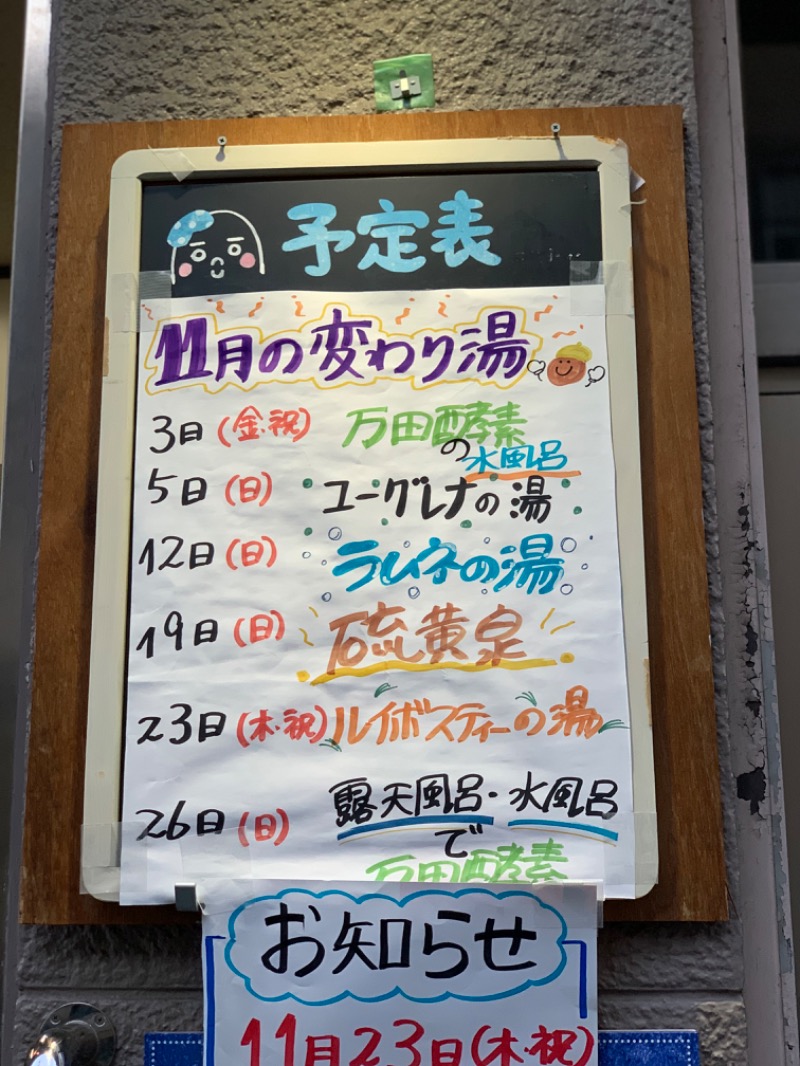 予定表
11月の変わり湯
3日(金・祝) 万田酵素
の水風呂
5日(日) ユーグレナの湯
12日(日) ラムネの湯
19日(日) 硫黄泉
23日(木・祝) ルイボスティーの湯
26日(日) 露天風呂・水風呂
で
万田酵素
お知らせ
11月23日(木・祝)